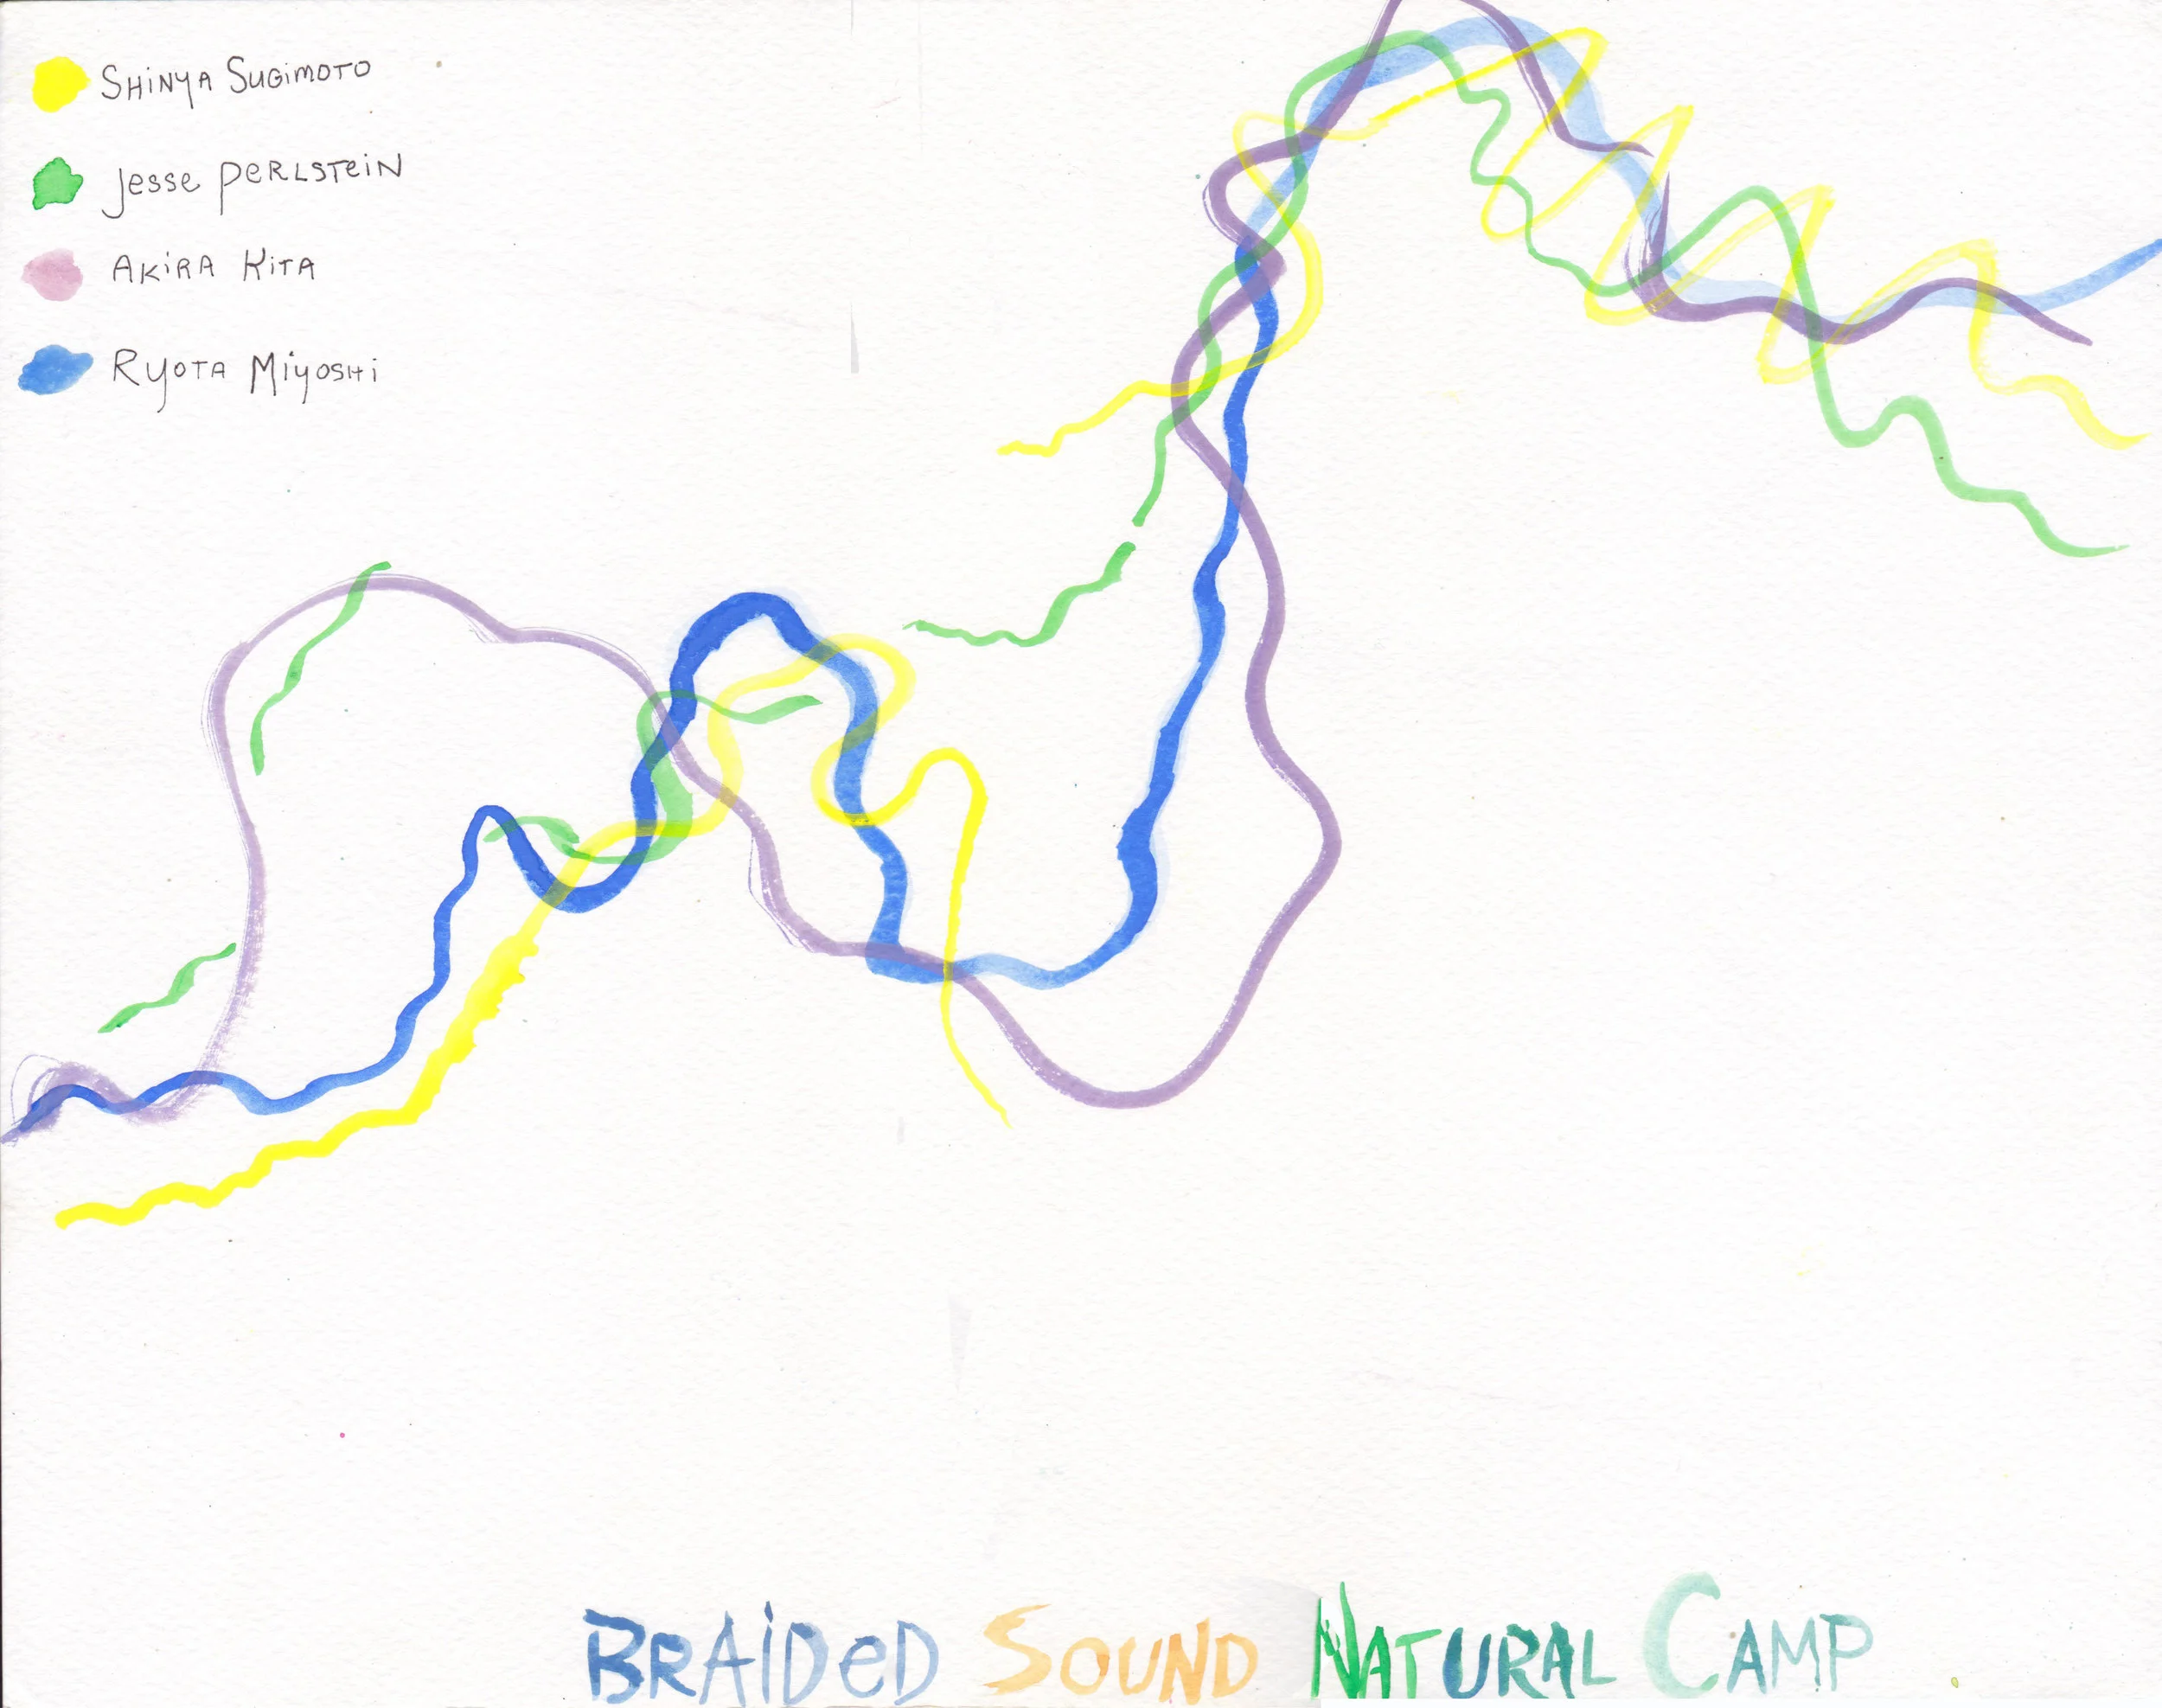 SHiNyA SUGiMOTO
Jesse PeRLSTeiN
AKiRA KiTA
RyOTA MiyOSHi
BRAiDeD SOUND NATURAL CAMP